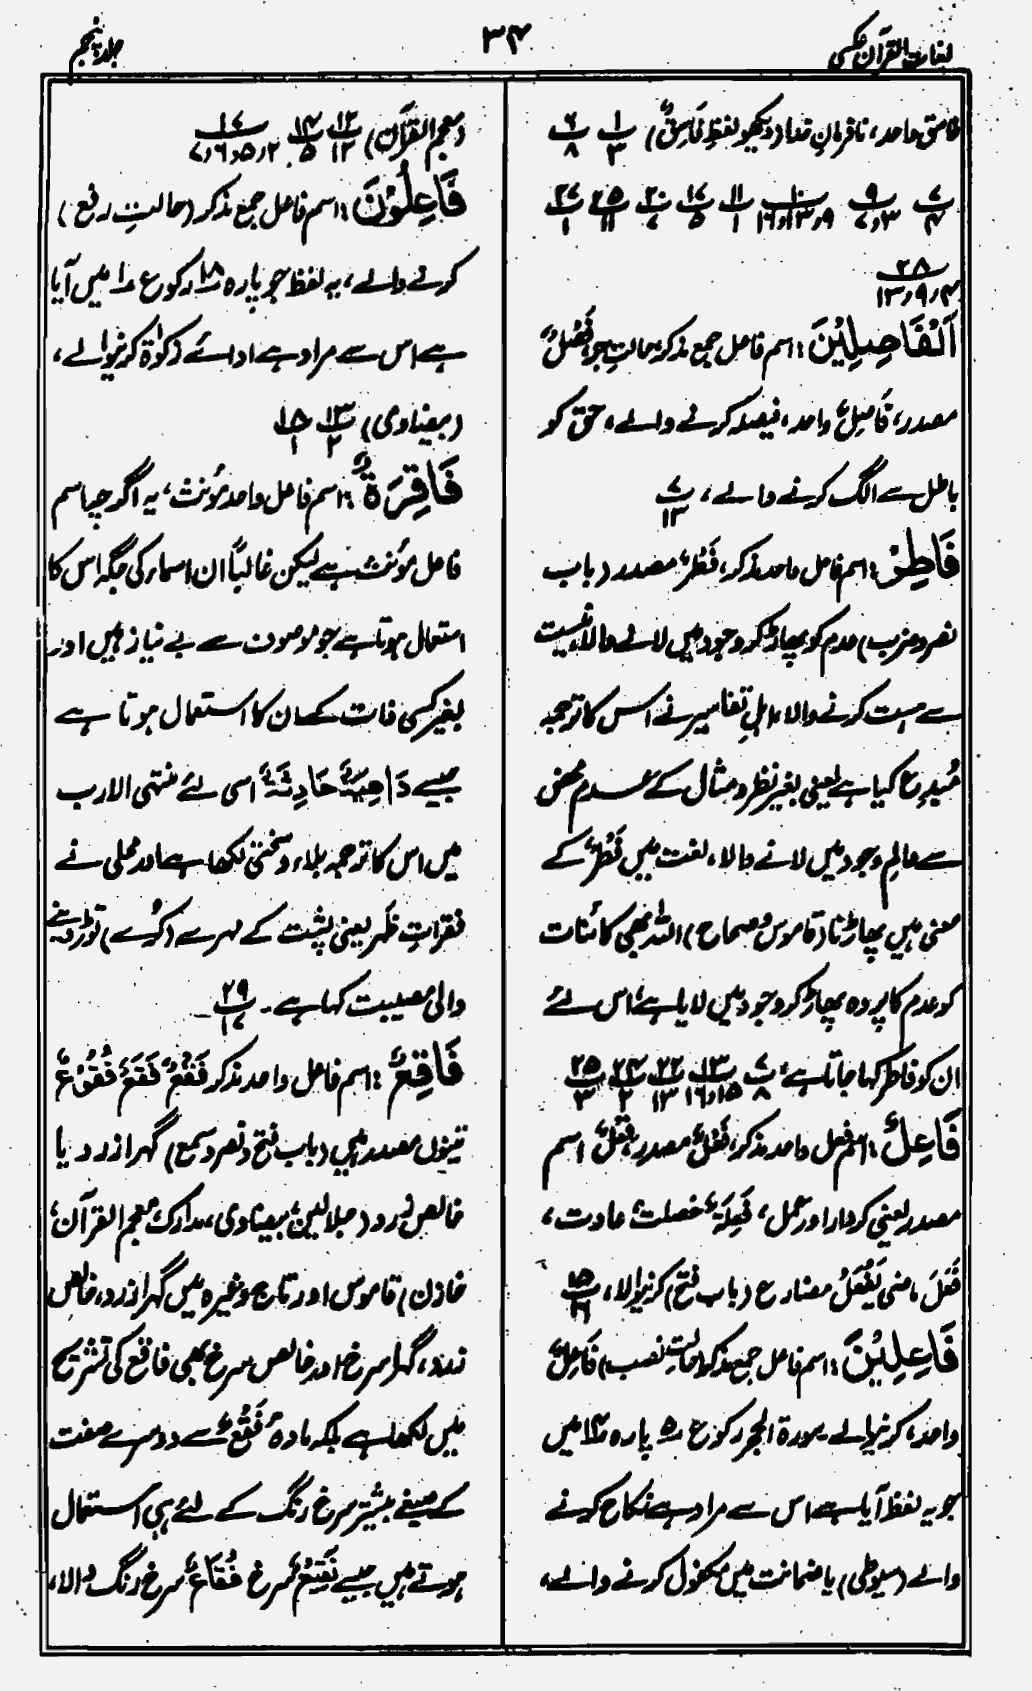 لغات القرآن عکسی
۳۴
جلد پنجم
فاسق واحد، نافرمانِ خدا (دیکھو لفظ فَاسِقٌ) پ۱/۳ پ۶/۸
پ۷/۴ پ۹/۳،۷ پ۱۰/۹،۱۳،۱۶ پ۱۱/۱ پ۱۷/۵ پ۲۰/۷ پ۲۵/۱۱ پ۲۷/۱
پ۲۸/۴،۹،۱۳
اَلْفَاصِلِیْنَ : اسم فاعل جمع مذکر بحالتِ جر، فَصْلٌ
مصدر، فَاصِلٌ واحد، فیصلہ کرنے والے، حق کو
باطل سے الگ کرنے والے، پ۷/۱۳
فَاطِرٌ : اسم فاعل واحد مذکر، فَطْرٌ مصدر (باب
نصر و ضرب) عدم کو پھاڑ کر وجود میں لانے والا، نیست
سے ہست کرنے والا، اہلِ تفاسیر نے اس کا ترجمہ
مُبْدِع کیا ہے یعنی بغیر نظر و مثال کے عدم محض
سے عالمِ وجود میں لانے والا، لغت میں فَطْرٌ کے
معنی ہیں پھاڑنا (قاموس و صحاح) اللہ بھی کائنات
کو عدم کا پردہ پھاڑ کر وجود میں لایا ہے، اس لئے
ان کو فاطر کہا جاتا ہے، پ۷/۸ پ۱۳/۱۵،۱۶ پ۲۲/۱۳ پ۲۴/۲ پ۲۵/۳
فَاعِلٌ : اسم فعل واحد مذکر، فَعْلٌ مصدر، فِعْلٌ اسم
مصدر یعنی کردار اور عمل، فَعِلَۃٌ خصلت، عادت،
فَعَلَ ماضی یَفْعَلُ مضارع (باب فتح) کرنیوالا، پ۱۵/۱۶
فَاعِلِیْنَ : اسم فاعل جمع مذکر (حالتِ نصب) فَاعِلٌ
واحد، کرنیوالے۔ سورۃ الحجر رکوع ۵ پارہ ۱۴ میں
جو یہ لفظ آیا ہے اس سے مراد ہے نکاح کرنے
والے (سیوطی) یا ضمانت میں مکفول کرنے والے،
(معجم القرآن) پ۱۲/۱۲ پ۱۴/۵ پ۱۷/۲،۵،۶،۷
فَاعِلُوْنَ : اسم فاعل جمع مذکر (حالتِ رفع)
کرنے والے، یہ لفظ جو پارہ ۱۸ رکوع ۱ میں آیا
ہے اس سے مراد ہے ادائے زکوٰۃ کرنیوالے،
(بیضاوی) پ۱۳/۲ پ۱۸/۱
فَاقِرَۃٌ : اسم فاعل واحد مؤنث، یہ اگرچہ اسم
فاعل مؤنث ہے لیکن غالباً ان اسماء کی جگہ اس کا
استعمال ہوتا ہے جو موصوف سے بے نیاز ہیں اور
بغیر کسی ذات کے ان کا استعمال ہوتا ہے
جیسے دَاھِیَۃٌ حَادِثَۃٌ اسی لئے منتہی الارب
میں اس کا ترجمہ بلاء و سختی لکھا ہے اور محلی نے
فقراتِ ظَہر یعنی پشت کے مہرے (کُرّے) توڑ دینے
والی مصیبت کہا ہے۔ پ۲۹/۱۷
فَاقِعٌ : اسم فاعل واحد مذکر فَقْعٌ فَقَعٌ فُقُوْعٌ
تینوں مصدر ہیں (باب فتح و نصر و سمع) گہرا زرد یا
خالص زرد (جلالین، بیضاوی، مدارک، معجم القرآن،
خازن) قاموس اور تاج وغیرہ میں گہرا زرد، خالص
زرد، گہرا سرخ اور خالص سرخ بھی فاقع کی تشریح
میں لکھا ہے بلکہ مادہ فَقْعٌ سے دوسرے صفت
کے صیغے بیشتر سرخ رنگ کے لئے ہی استعمال
ہوتے ہیں جیسے فَقِیْعٌ سرخ فُقَاعٌ سرخ رنگ والا،